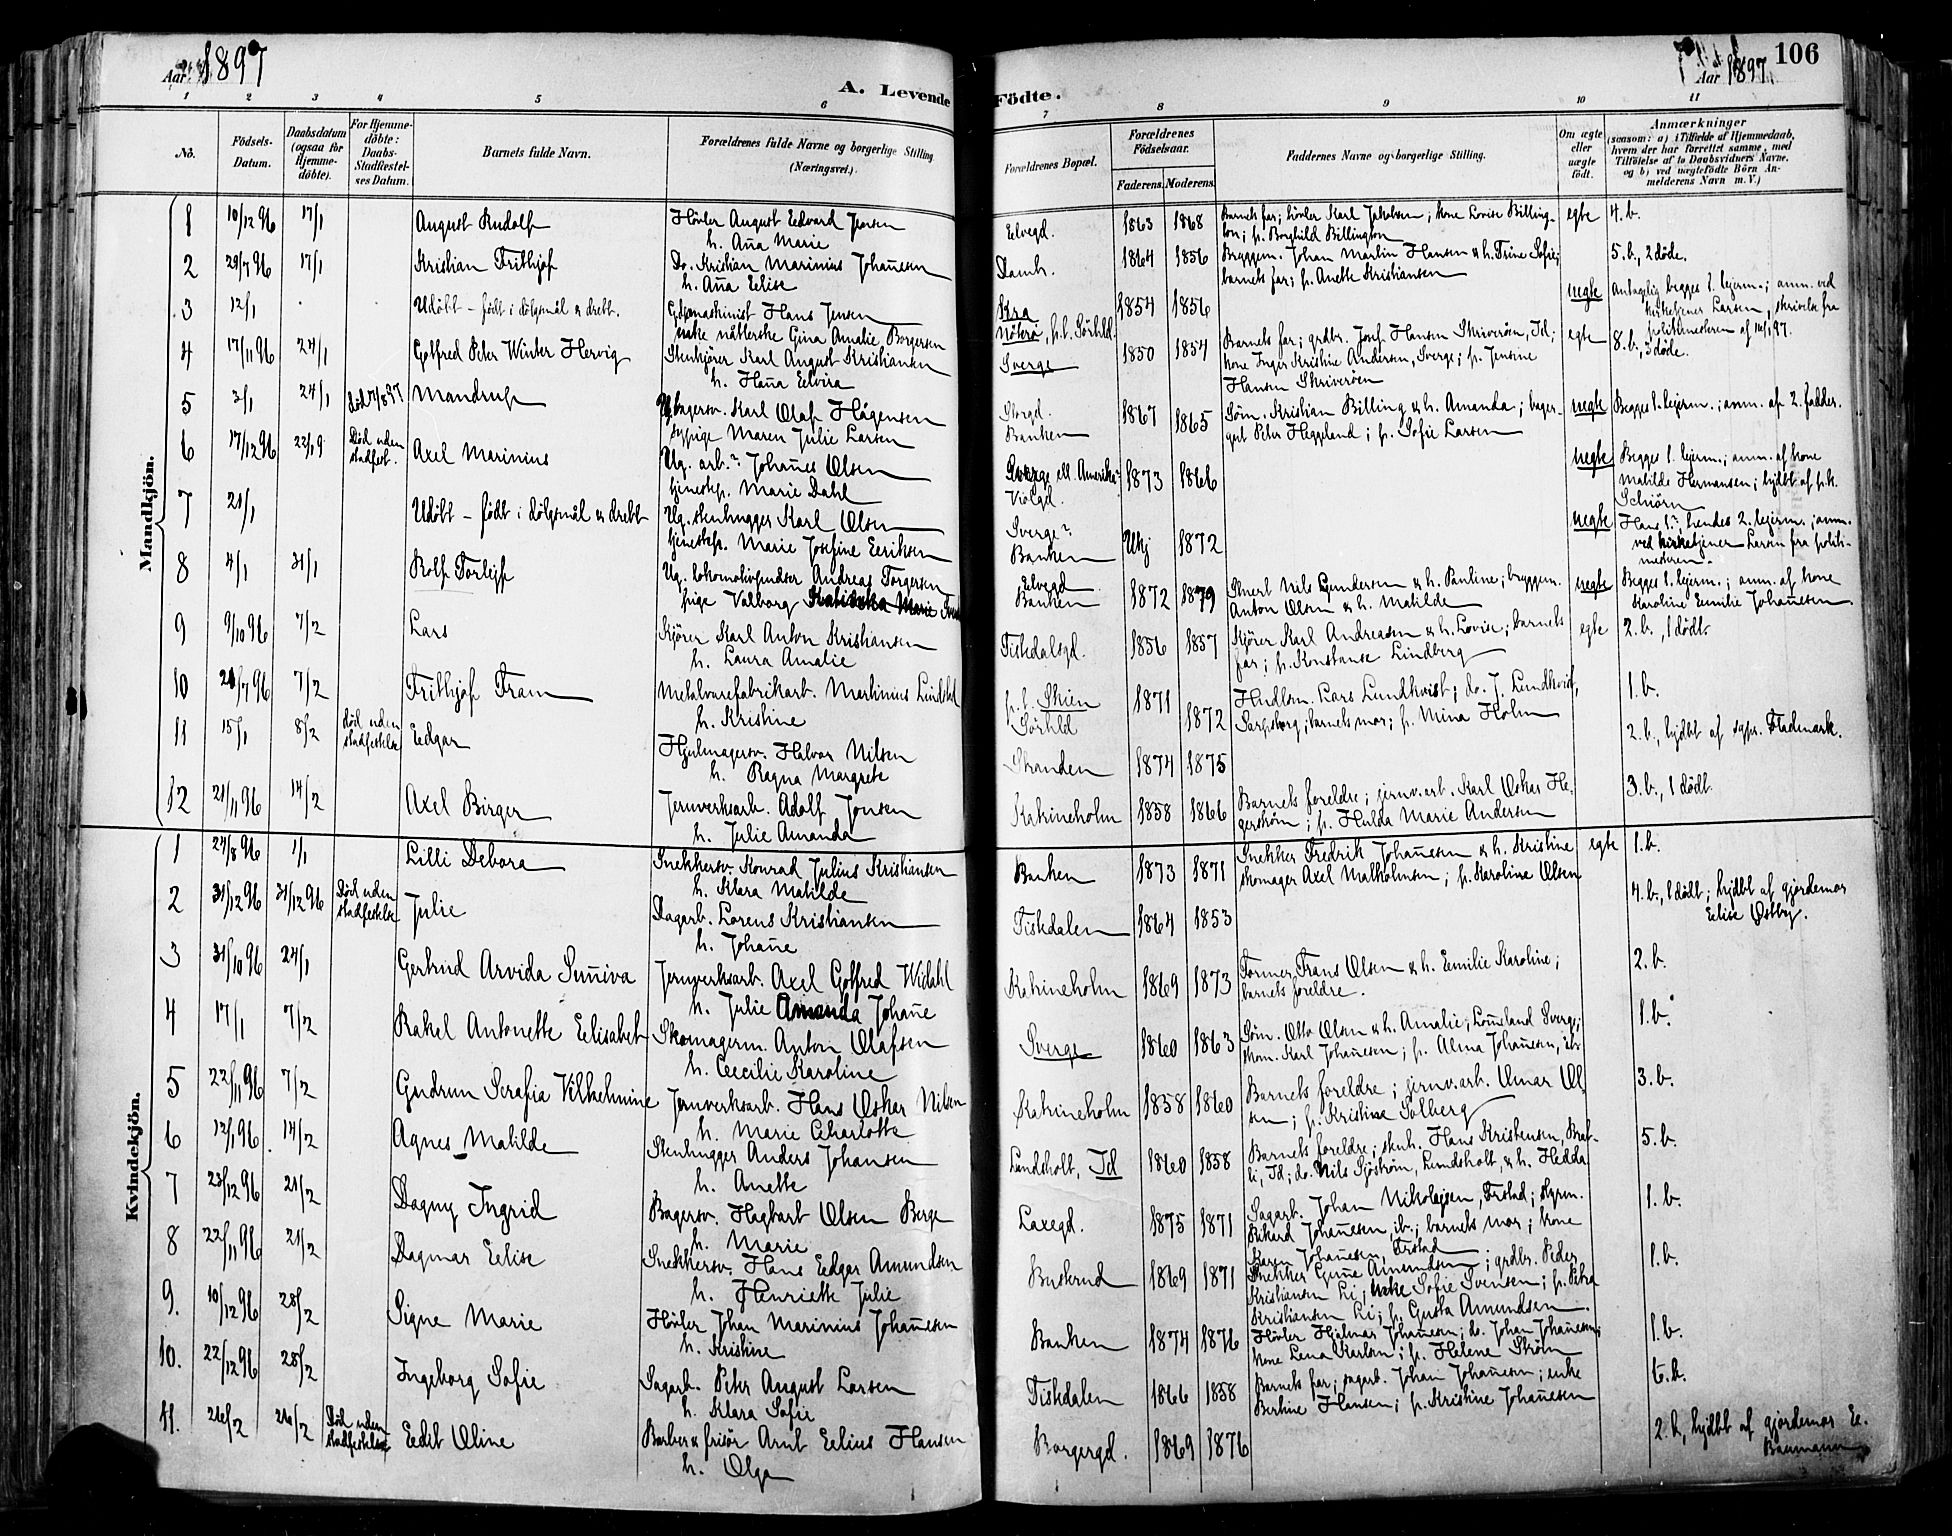 Aar 1897
A. Levende
Födte.
Aar 1897.
106
1 2 3 4 5 6 7 8 9 10 11
No.
Födsels-
Datum.
Daabsdatum
(ogsaa for
Hjemme-
döbte).
For Hjemme-
döbte:
Daabs-
Stadfæstel-
ses Datum.
Barnets fulde Navn.
Forældrenes fulde Navne og borgerlige Stilling
(Næringsvei.)
Forældrenes Bopæl.
Forældrenes
Födselsaar.
Faderens. Moderens.
Faddernes Navne og borgerlige Stilling.
Om ægte
eller
uægte
födt.
Anmærkninger
(saasom: a) i Tilfælde af Hjemmedaab,
hvem der har forrettet samme, med
Tilföielse af to Daabsvidners Navne.
og b) ved uægtefödte Börn An-
melderens Navn m. V.)
Mandkjön.
1 10/12 96 17/1 August Rudolf Hövler August Edvard Jensen
h. Aña Marie
Elvegd. 1863 1868 Barnets far; hövler Karl Jakobsen; kone Lovise Billing-
ton; p. Borghild Billington egte 4. b.
2 29/7 96 17/1 Kristian Frithjof Do. Kristian Marinius Johañesen
h. Aña Eelise
Damh. 1864 1856 Bryggem. Johan Martin Hansen & h. Trine Sofie;
barnets far; p. Anette Kristiansen 5. b., 2 döde.
3 12/1 . . Udöbt – födt i dölgsmål & drebt. Hans Jensen
enke nätterske Gina Amalie Borgersen
Kra 1854 1856 uegte Antagelig begges 1. lejerm.; anm. ved
kirketjener Larsen, skrivelse fra
politimesteren af 14/1 97.
4 17/11 96 24/1 Gotfred Peter Winter Hervig Stenkjörer Karl August Kristiansen
h. Haña Eelvira
Sverge 1850 1854 Barnets far; grdbr. Josef Hansen Skriveröen, Id;
kone Inger Kristine Andersen, Sverge; p. Jensine
Hansen Skriveröen egte 8. b., 3 döde.
5 3/1 24/1 Mandrup Ug. bagersv. Karl Olaf Hågensen
sypige Maren Julie Larsen
Storgd.
Banken 1867 1865 Söm. Kristian Billing & h. Amanda; bager-
gut Peter Heggeland; p. Sofie Larsen uegte Begges 1. lejerm.; anm. af 2. fadder.
6 17/12 96 Död uden
stadfest. Axel Marinius Ug. arb.? Johañes Olsen
tjenestep. Marie Dahl
Sverge ell. Amerika?
Violgd. 1873 1866 uegte Begges 1. lejerm.; anm. af kone
Matilde Hermansen; hjdbt af p.k.
Schiörn
7 21/1 Udöbt – födt i dölgsmål & drebt Ug. stenhugger Karl Olsen
tjenestep. Marie Josefine Eeriksen
Sverge?
Banken Ukj 1872 uegte Hans 1?, hendes 2. lejerm.; anm.
ved kirketjener Larsen fra politi-
mesteren.
8 4/1 31/1 Rolf Torleif Ug. lokomotivpudser Andreas Torgersen
pige Valborg
Elvegd
Banken 1872 1879 Skuerl Nils Gundersen & h. Pauline; bryggem.
Anton Olsen & h. Matilde uegte Begges 1. lejerm.; anm. af kone
Karoline Eemilie Johañesen
9 9/10 96 7/2 Lars Kjörer Karl Anton Kristiansen
h. Laura Amalie
Tiskdalsgd. 1856 1857 Kjörer Karl Andreasen & h. Lovise; barnets
far; p. Konstanse Lindberg egte 2. b., 1 dödt.
10 7/2 Frithjof Fram Metalvarefabrikarb. Martinius Lindahl
h. Kristine
p. t. Skien
Sörhld 1871 1872 Handlsm. Lars Lundkvist; do. J. Lundkvist,
Sarpsborg; barnets mor; p. Mina Holm 1. b.
11 15/1 8/2 död uden
stadfestelse Eedgar Hjulmagersv. Halvor Nilsen
h. Ragna Margrete
Stranden 1874 1875 2. b., hjdbt af sypr. Flademark.
12 21/11 96 14/2 Axel Birger Jernverksarb. Adolf Jonsen
h. Julie Amanda
Katrineholm 1858 1866 Barnets foreldre; jernv.arb. Karl Oskar He-
gerström; p. Hulda Marie Andersen 3. b., 1 dödt.
Kvindekjön.
1 27/8 96 1/1 Lilli Debora Snekkersv. Konrad Julius Kristiansen
h. Klara Matilde
Banken 1873 1871 Snekker Fredrik Johañesen & h. Kristine
skomager Axel Malkolmsen; p. Karoline Olsen egte 1. b.
2 31/12 96 31/12 96 Död uden
stadfestelse Julie Dagarb. Lorens Kristiansen
h. Johañe
Tistedalen 1864 1853 4. b., 1 dödt; hjdbt af gjordemor
Eelise Ostby.
3 31/10 96 24/1 Gertrud Arvida Suñiva Jernverksarb. Axel Gotfred Widahl
h. Julie Amanda Johañe
Katrineholm 1869 1873 Former Frans Olsen & h. Eemilie Karoline;
barnets foreldre. 2. b.
4 17/1 7/2 Rakel Antonette Eelisabet Skomagerm. Anton Olafsen
h. Cecilie Karoline
Sverge 1860 1863 Söm. Otto Olsen & h. Amalie, Loñeland Sverge;
skom. Karl Johañesen; p. Alma Johañesen, 1. b.
5 22/11 96 7/2 Gudrun Serafia Vilhelmine Jernverksarb. Hans Oskar Nilsen
h. Marie Charlotte
Katrineholm 1858 1860 Barnets foreldre; jernv.arb. Omar Ol-
sen; p. Kristina Solberg 3. b.
6 12/1 96 14/2 Agnes Matilde Stenhugger Anders Johansen
h. Anette
Lundsholt, Id 1860 1858 Barnets foreldre; stenh. Hans Kristensen, Brat-
li, Id; do. Nils Sjöström, Lundsholt, & h. Hedda 5. b.
7 23/12 96 21/2 Dagny Ingrid Bagersv. Hagbart Olsen Berge
h. Marie
Laxegd. 1875 1871 Sagarb. Johan Nikolajsen, Fristad; styrm.
Rikard Johañesen, ib.; barnets mor; kone
Karen Johañesen, Fristad 1. b.
8 22/11 96 21/2 Dagmar Eelise Snekkersv. Hans Eedgar Amundsen
h. Henriette Julie
Buskerud 1869 1871 Snekker Amundsen; grdbr. Peder
Kristiansen Li; enke Sofie Svensen; p. Petra
Kristiansen Li; p. Gusta Amundsen. 1. b.
9. 10/12 96 28/2 Signe Marie Hövler Johan Marinius Johañesen
h. Kristine
Banken 1874 1876 Hövler Hjalmar Johañesen; do. Johan Johañesen;
kone Lena Karlsen; p. Helene Ström 1. b.
10. 22/12 96 28/2 Ingeborg Sofie Sagarb. Peter August Larsen
h. Klara Sofie
Tistedalen 1866 1858 Barnets far; sagarb. Johan Johañesen; enke
Bertine Hansen; p. Kristine Johañesen 6. b.
11. 26/2 26/2 Död uden
stadfestelse Eedit Oline Barber & frisör Arnt Eelius Hansen
h. Olga
Borgergd. 1869 1876 2. b., hjdbt af gjordemor Ee.
Baumann